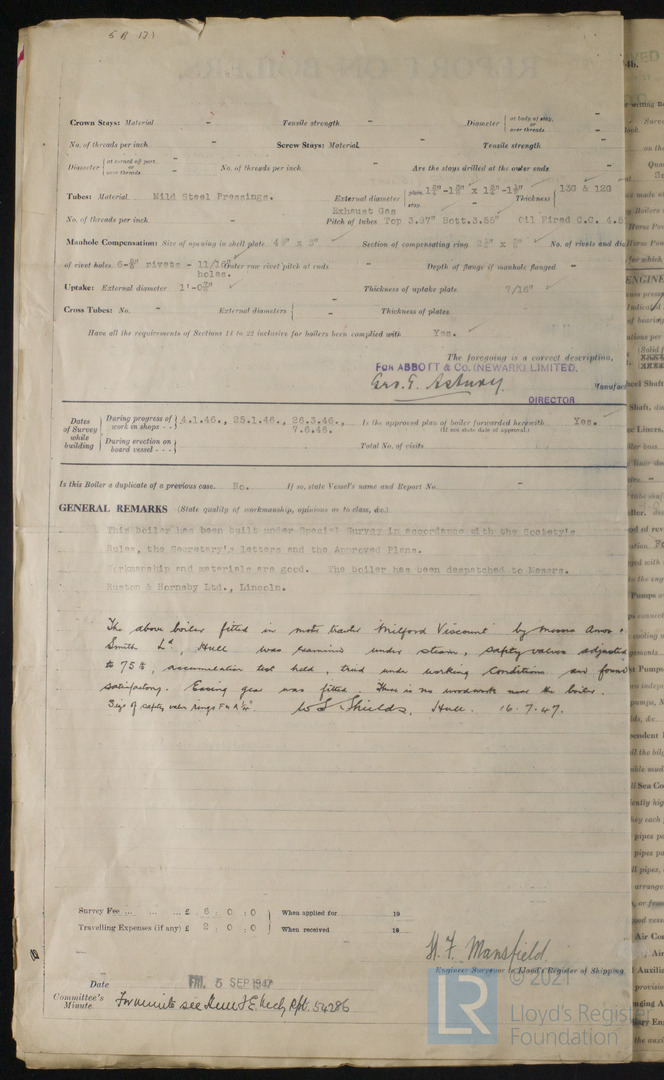 5 R 171
Crown Stays: Material - Tensile strength - Diameter { at body of stay, or over threads -
No. of threads per inch - Screw Stays: Material - Tensile strength -
Diameter { at turned off part, or over threads - No. of threads per inch - Are the stays drilled at the outer ends -
Tubes: Material Mild Steel Pressings. External diameter { plain stay Thickness { 13G & 12G
Exhaust Gas
No. of threads per inch - Pitch of tubes Top 3.97" Bott.3.56" Oil Fired C.C. 4.5
Manhole Compensation: Size of opening in shell plate Section of compensating ring No. of rivets and dia
of rivet holes 6-⅝" rivets - 11/16" holes. Outer row rivet pitch at ends - Depth of flange if manhole flanged -
Uptake: External diameter Thickness of uptake plate 7/16"
Cross Tubes: No. - External diameters { - Thickness of plates -
Have all the requirements of Sections 14 to 22 inclusive for boilers been complied with Yes.
The foregoing is a correct description,
FOR ABBOTT & CO. (NEWARK) LIMITED.
Manufac
DIRECTOR
Dates of Survey while building { During progress of work in shops - - } 4.1.46., 25.1.46., 26.3.46., 7.6.46. Is the approved plan of boiler forwarded herewith Yes.
(If not state date of approval.)
{ During erection on board vessel - - - } Total No. of visits
Is this Boiler a duplicate of a previous case. No. If so, state Vessel's name and Report No. -
GENERAL REMARKS (State quality of workmanship, opinions as to class, &c.)
This boiler has been built under Special Survey in accordance with the Society's
Rules, the Secretary's letters and the Approved Plans.
Workmanship and materials are good. The boiler has been despatched to Messrs.
Ruston & Hornsby Ltd., Lincoln.
The above boiler fitted in motor trawler "Milford Viscount" by Messrs Amos &
Smith Ld, Hull was examined under steam, safety valves adjusted
to 75 lb, accumulation test held, tried under working conditions and found
satisfactory. Easing gear was fitted. There is no woodwork near the boiler.
Size of safety valve rings W S Shields, Hull. 16.7.47.
Survey Fee ... ... ... £ 6 : 0 : 0 } When applied for 19
Travelling Expenses (if any) £ 2 : 0 : 0 } When received 19
H. F. Mansfield
Engineer Surveyor to Lloyd's Register of Shipping.
Date FRI. 5 SEP 1947
Committee's Minute. For minute see Hull F.E. Mchy Rpt. 54286
© 2021
LR Lloyd's Register
Foundation